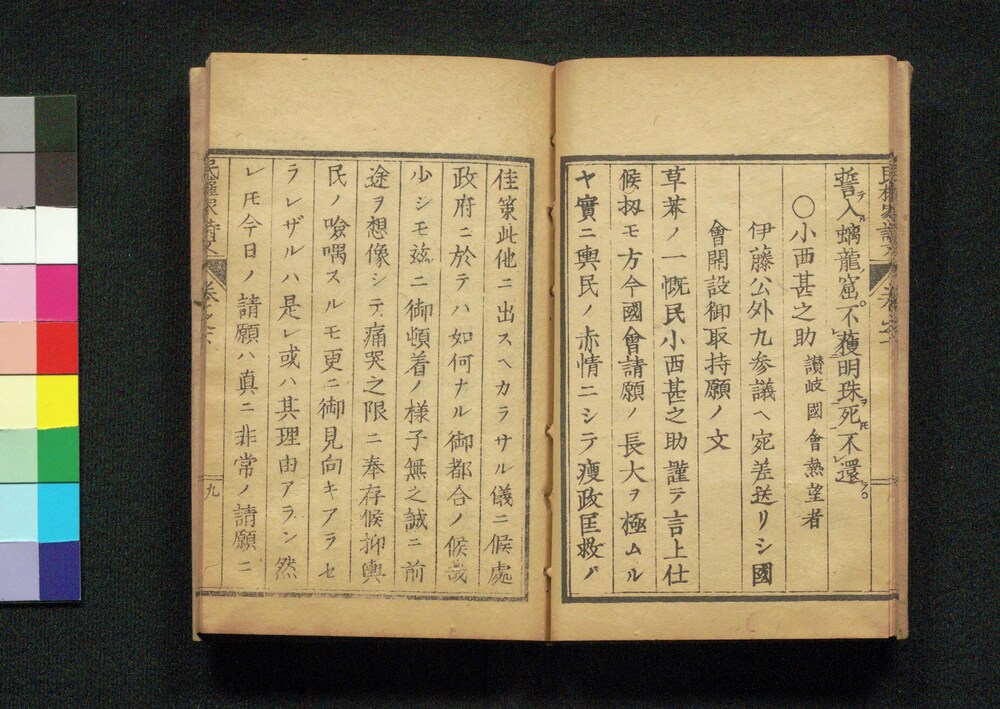 誓入螭龍窟不獲明珠死不還
〇小西甚之助 讃岐國會熱望者
伊藤公外九参議ヘ宛差送リシ國
會開設御取持願ノ文
草莽ノ一慨民小西甚之助謹テ言上仕
候扨モ方今國會請願ノ長大ヲ極ムル
ヤ實ニ輿民ノ赤情ニシテ痩政匡救ノ
佳策此他ニ出スヘカラサル儀ニ候處
政府ニ於テハ如何ナル御都合ノ候哉
少シモ玆ニ御頓着ノ様子無之誠ニ前
途ヲ想像シテ痛哭之限ニ奉存候抑輿
民ノ喁スルモ更ニ御見向キアラセ
ラレザルハ是レ或ハ其理由アラン然
レ𪜈今日ノ請願ハ真ニ非常ノ請願ニ
九